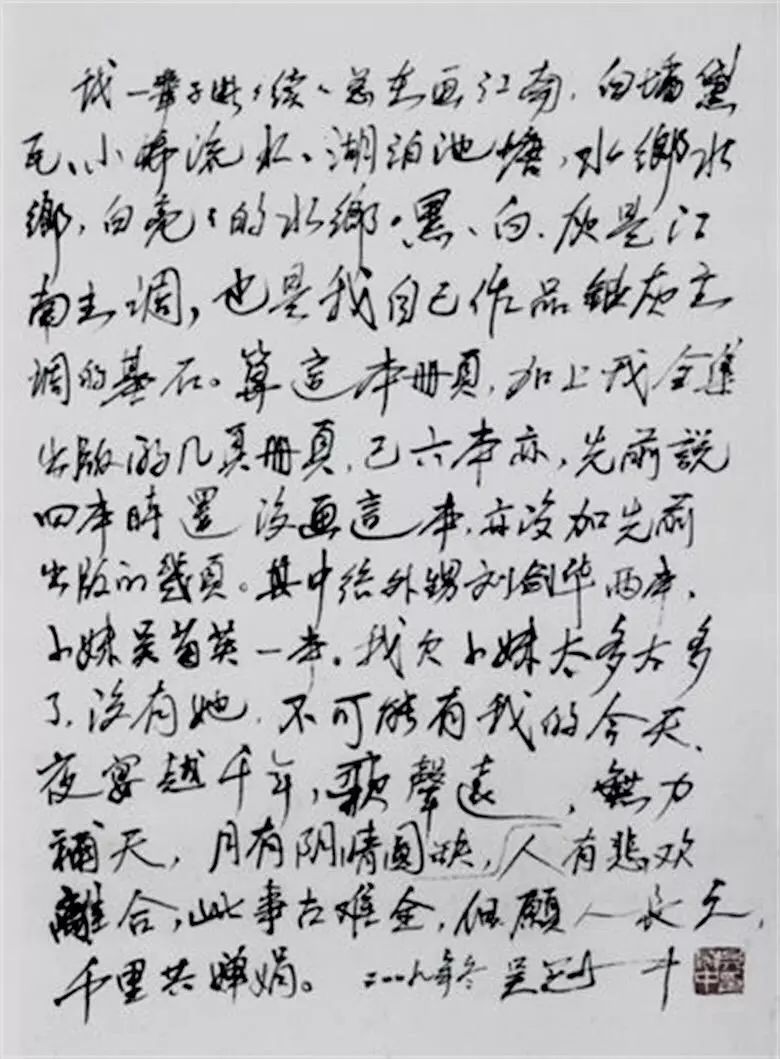 我一辈子断、续、总在画江南，白墙黛
瓦、小桥流水、湖泊池塘，水鄉水
鄉，白亮亮的水鄉。黑、白、灰是江
南主调，也是我自己作品银灰主
调的基石。算這本册頁，加上我全集
出版的几頁册頁，已六本亦，先前説
四本時還没画這本，亦没加先前
出版的幾頁。其中给外甥刘剑华两本，
小妹吴菊英一本。我欠小妹太多太多
了，没有她，不可能有我的今天、
夜宴越千年，歌聲遠，無力
補天，月有阴晴圆缺，人有悲欢
離合，此事古难全，但願人長久，
千里共婵娟。二〇〇九年冬 吴冠中